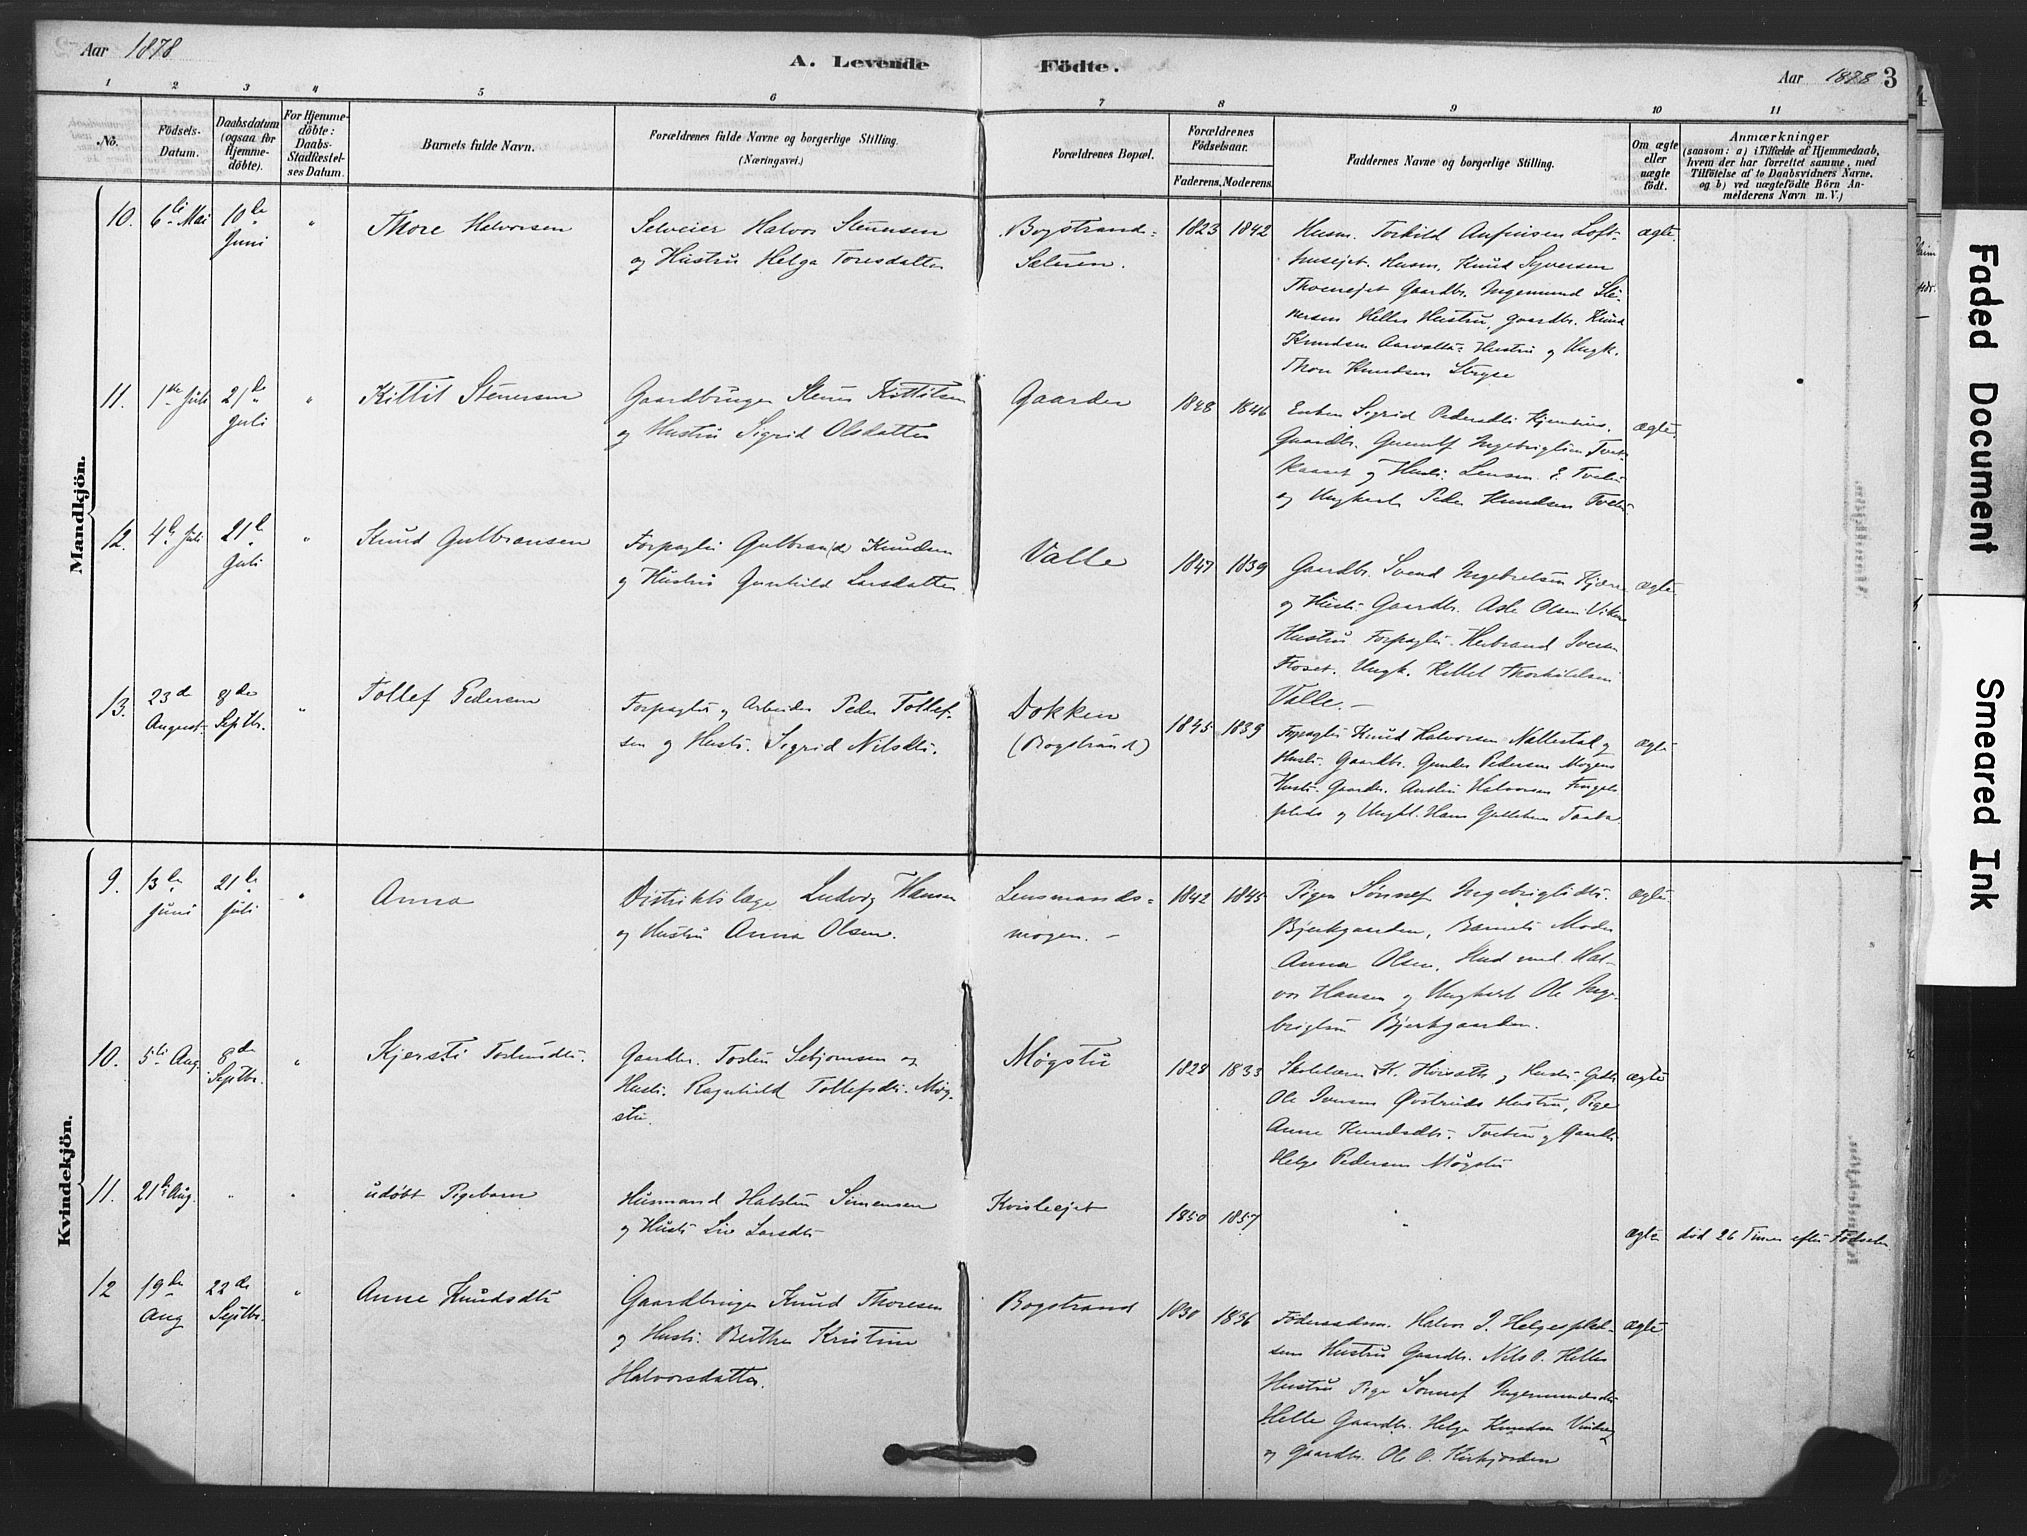 Aar 1878
A. Levende Födte.
Aar 1878 3
1 2 3 4 5 6 7 8 9 10 11
No.
Födsels-Datum.
Daabsdatum (ogsaa for Hjemmedöbte).
For Hjemmedöbte: Daabs-Stadfæstelses Datum.
Barnets fulde Navn.
Forældrenes fulde Navne og borgerlige Stilling.
(Næringsvei.)
Forældrenes Bopæl.
Forældrenes Födselsaar.
Faderens. Moderens.
Faddernes Navne og borgerlige Stilling.
Om ægte eller uægte födt.
Anmærkninger
(saasom: a) i Tilfælde af Hjemmedaab,
hvem der har forrettet samme, med
Tilföielse af to Daabsvidners Navne.
og b) ved uægtefödte Börn Anmelderens Navn m. V.)
Mandkjön.
10. 6te Mai 10de Juni " Thore Halvorsen
Selveier Halvor Stenersen
og Hustru Helga Toresdatter
Bogstrand-
Sæteren.
1823 1842
Husm. Torkild Anfinsen Loft-
husejet. Husm. Knud Syversen
Thoenejet Gaardbr. Ingemund Ste-
nersen Helles Hustru, gaardbr. Knud
Knudsen Hustru og Ungk.
Thore Knudsen
ægte.
11. 1ste Juli 21de Juli " Kittil Stenersen
Gaardbruger Stener Kittilsen
og Hustru Sigrid Olsdatter
Gaarden
1848 1846
Enken Sigrid Pedersdtr.
Gaardbr. Ingebrigtsen
og Hustr. Lensm. E.
og Ungkarl Peder Knudsen
ægte.
12. 4de Juli 21de Juli " Knud Gulbransen
Forpagter Gulbrand Knudsen
og Hustru Gunhild Larsdatter
Valle
1847 1839
Gaardbr. Svend Ingebretsen
og Hustr. Gaardbr. Asle Olsen
Hustru Forpagter Herbrand Iversen
Floset. Ungk. Kittel
Valle. –
ægte
13. 23de August. 8de Septbr. " Tollef Pedersen
Forpagter og Arbeider Peder Tollef-
sen og Hustr. Sigrid Nilsdtr.
Dokken
(Bogstrand)
1845 1839
Forpagter Knud Halvorsen Nattestal og
Hustr. Gaardbr. Gunder Pedersen Mogens
Hustr. Halvorsen
og Ungkl. Hans
ægte
Kvindekjön.
9. 13de Juni 21de Juli " Anna
Distriktslæge Ludvig Hansen
og Hustru Anna Olsen.
Lensmands-
mogen. –
1842 1845
Pigen Sønnef Ingebrigtsdtr.
Bjerkgaarden, Barnets Moder
Anna Olsen, Hal-
vor Hansen og Ungkarl Ole Inge-
brigtsen Bjerkgaarden.
ægte
10. 5te Aug. 8de Septbr. " Kjersti Tostensdtr.
Gaardbr. Tosten Sebjørnsen og
Hustr. Ragnhild Tollefsdtr. Møg-
stu.
Møgstu
1828 1833
Skolelærer K. og Hustr. Gdbr.
Ole Iversen Øvstruds Hustru, Pige
Anne Knudsdtr. og Gaardbr.
Helge Pedersen Møgstu
ægte
11. 21de Aug. " " udøbt Pigebarn
Husmand Halsten Simensen
og Hustr. Liv Larsdtr
Kvisleejet
1850 1857
"
ægte død 26 Timer efter Fødselen
12 19de Aug 22de Septbr. " Anne Knudsdtr
Gaardbruger Knud Thoresen
og Hustr. Berthe Kristine
Halvorsdatter.
Bogstrand
1830 1836
Föderaadsm. Halvor J. Helgesplad-
sens Hustru Gaardbr. Nils O. Helles
Hustru Pige Sønnef Ingemundsdtr
Helle Gaardbr. Helge Knudsen
og Gaardbr. Ole O. Kirkjorden
ægte
Faded Document
Smeared Ink